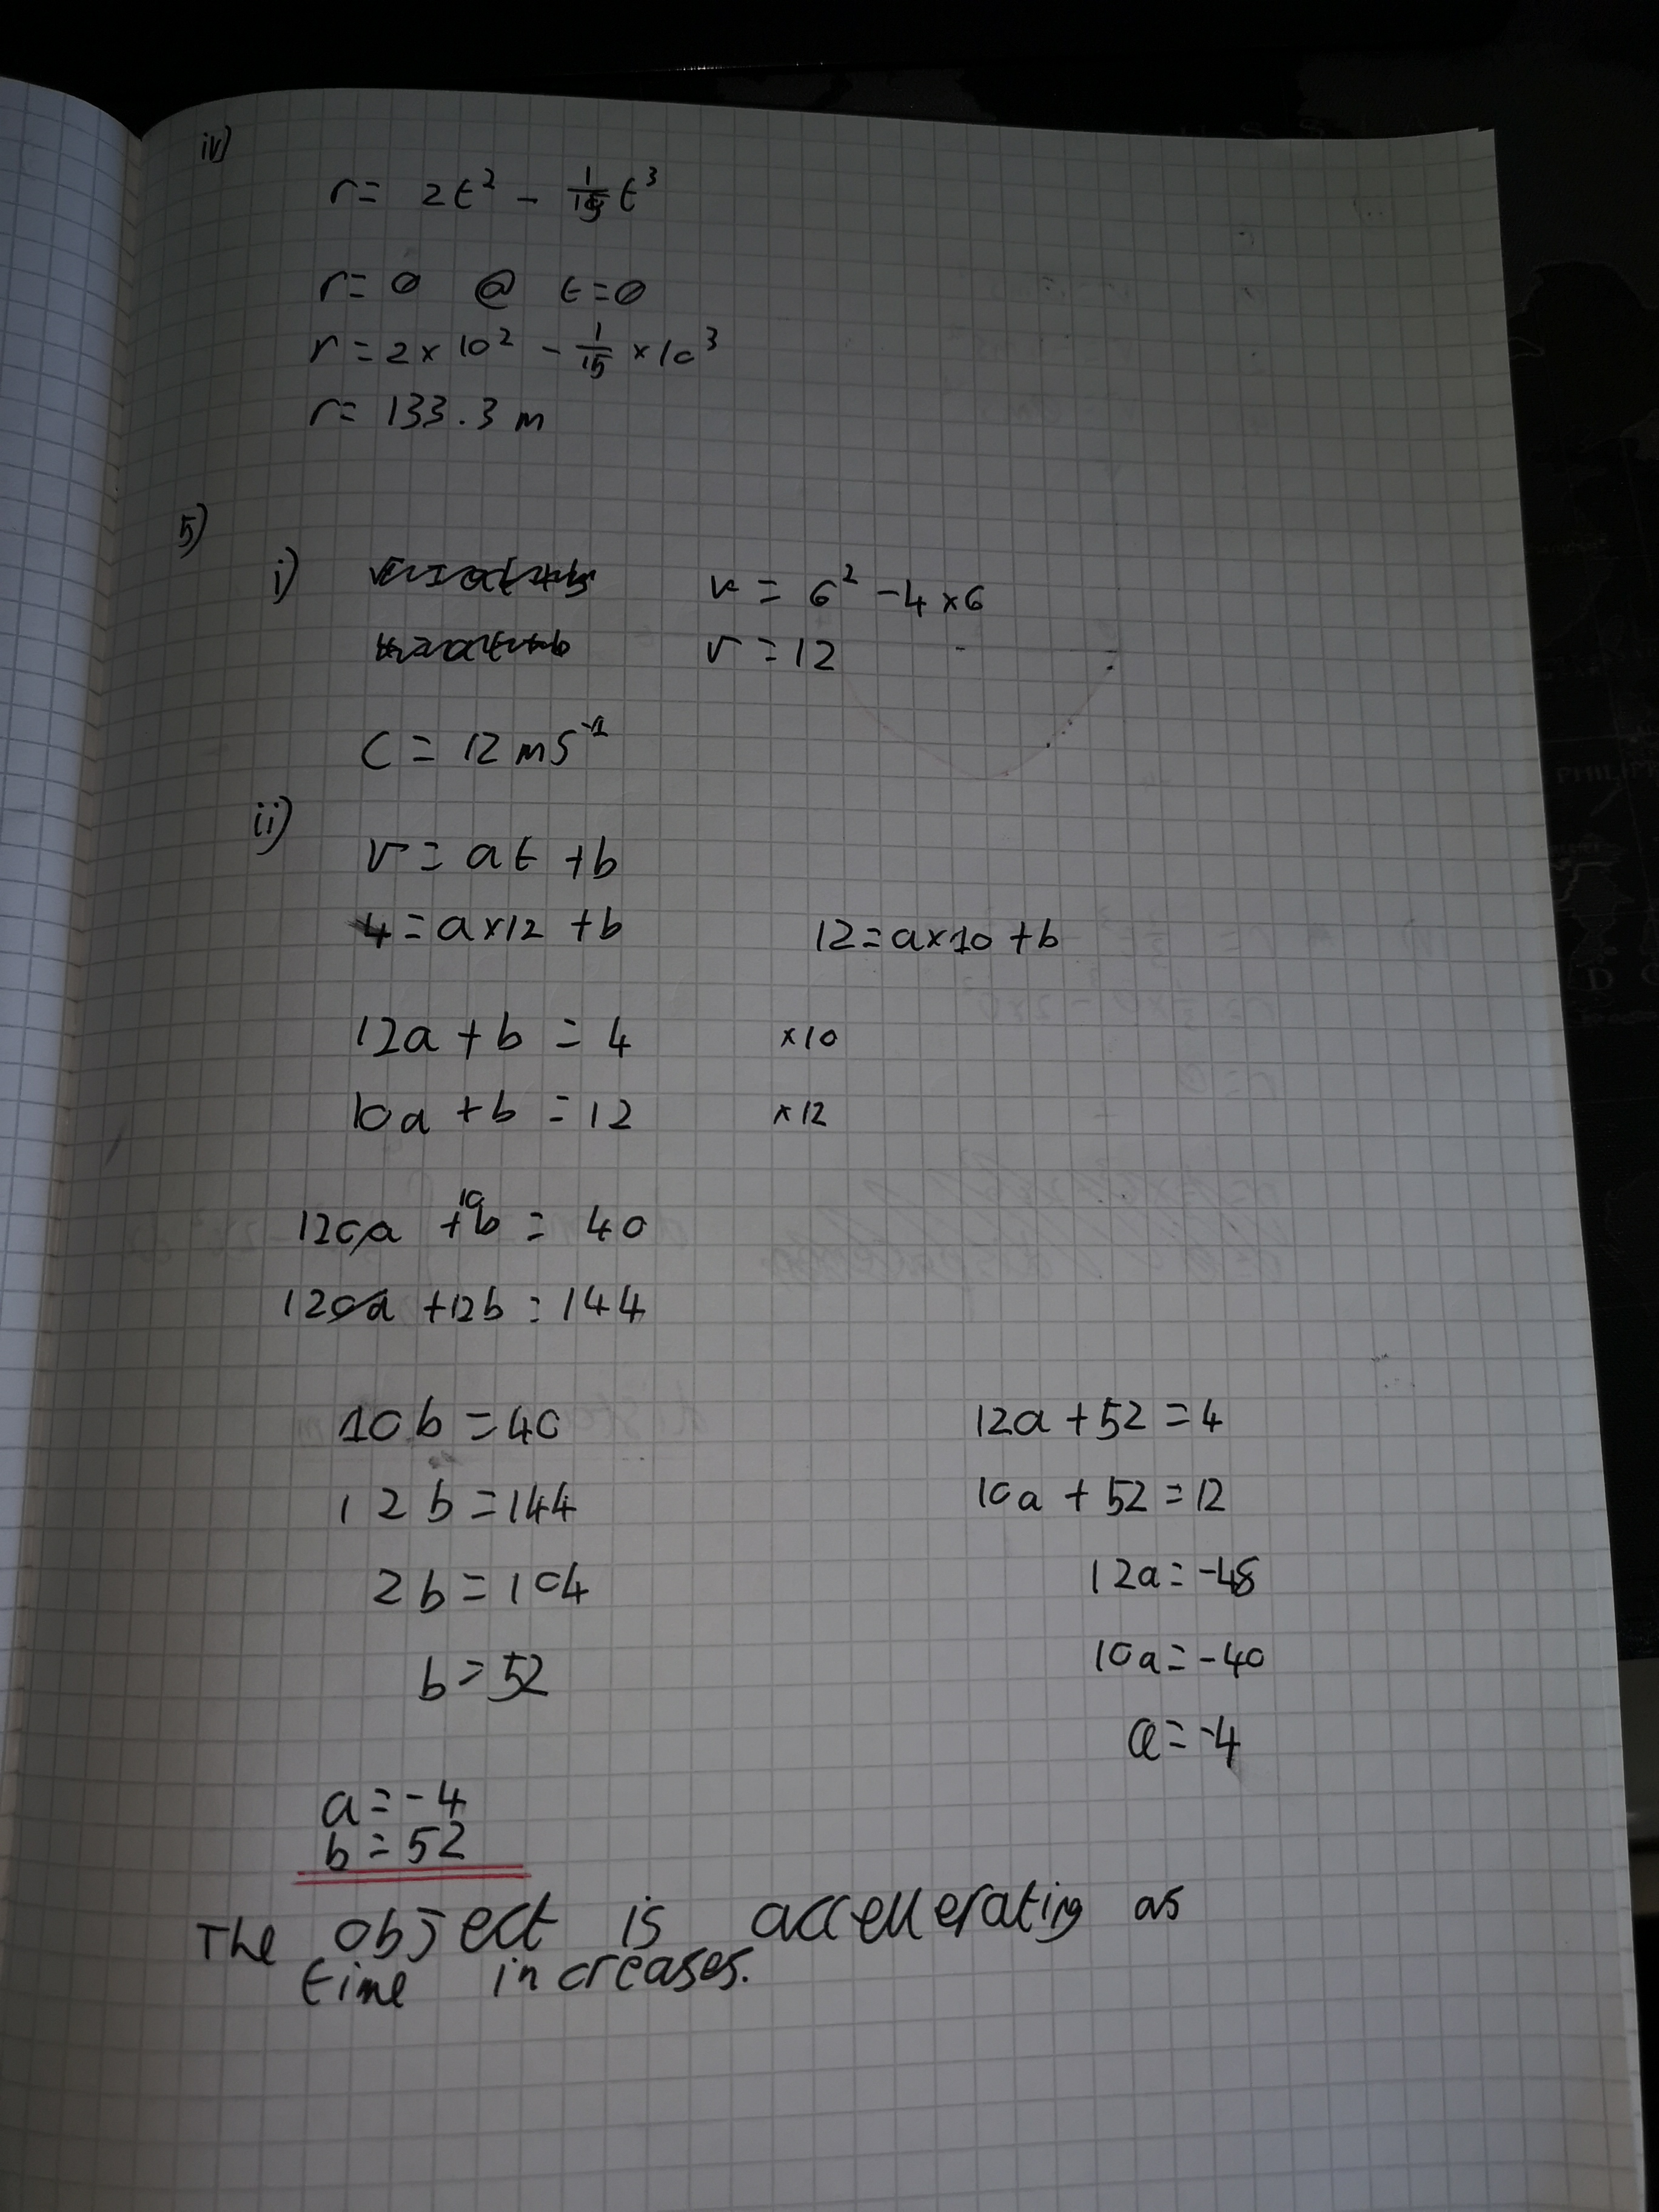 iv)
r = 2t² - 1/15 t³
r = 0 @ t = 0
r = 2 × 10² - 1/15 × 10³
r = 133.3 m
5)
i) v = 6² - 4 × 6
v = 12
C = 12 ms⁻¹
ii)
v = at + b
4 = a×12 + b 12 = a×10 + b
12a + b = 4 ×10
10a + b = 12 ×12
120a + 10b = 40
120a + 12b = 144
10b = 40 12a + 52 = 4
12b = 144 10a + 52 = 12
2b = 104 12a = -48
b = 52 10a = -40
a = -4
a = -4
b = 52
The object is accellerating as
time increases.